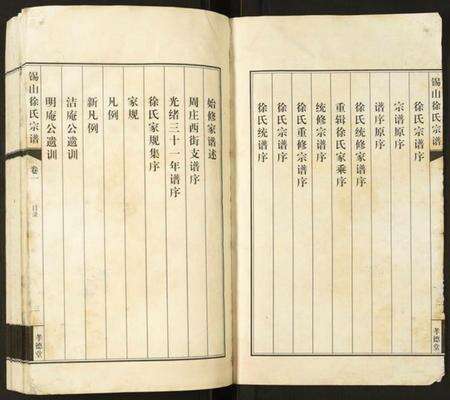 锡山徐氏宗谱
孝德堂
徐氏宗谱序
宗谱原序
谱序原序
徐氏统修家谱序
重辑徐氏家乘序
统修宗谱序
徐氏重修宗谱序
徐氏宗谱序
徐氏统谱序
始修家谱述
周庄西街支谱序
光绪三十一年谱序
徐氏家规集序
家规
凡例
新凡例
洁庵公遗训
明庵公遗训
锡山徐氏宗谱
卷一
目录
孝德堂